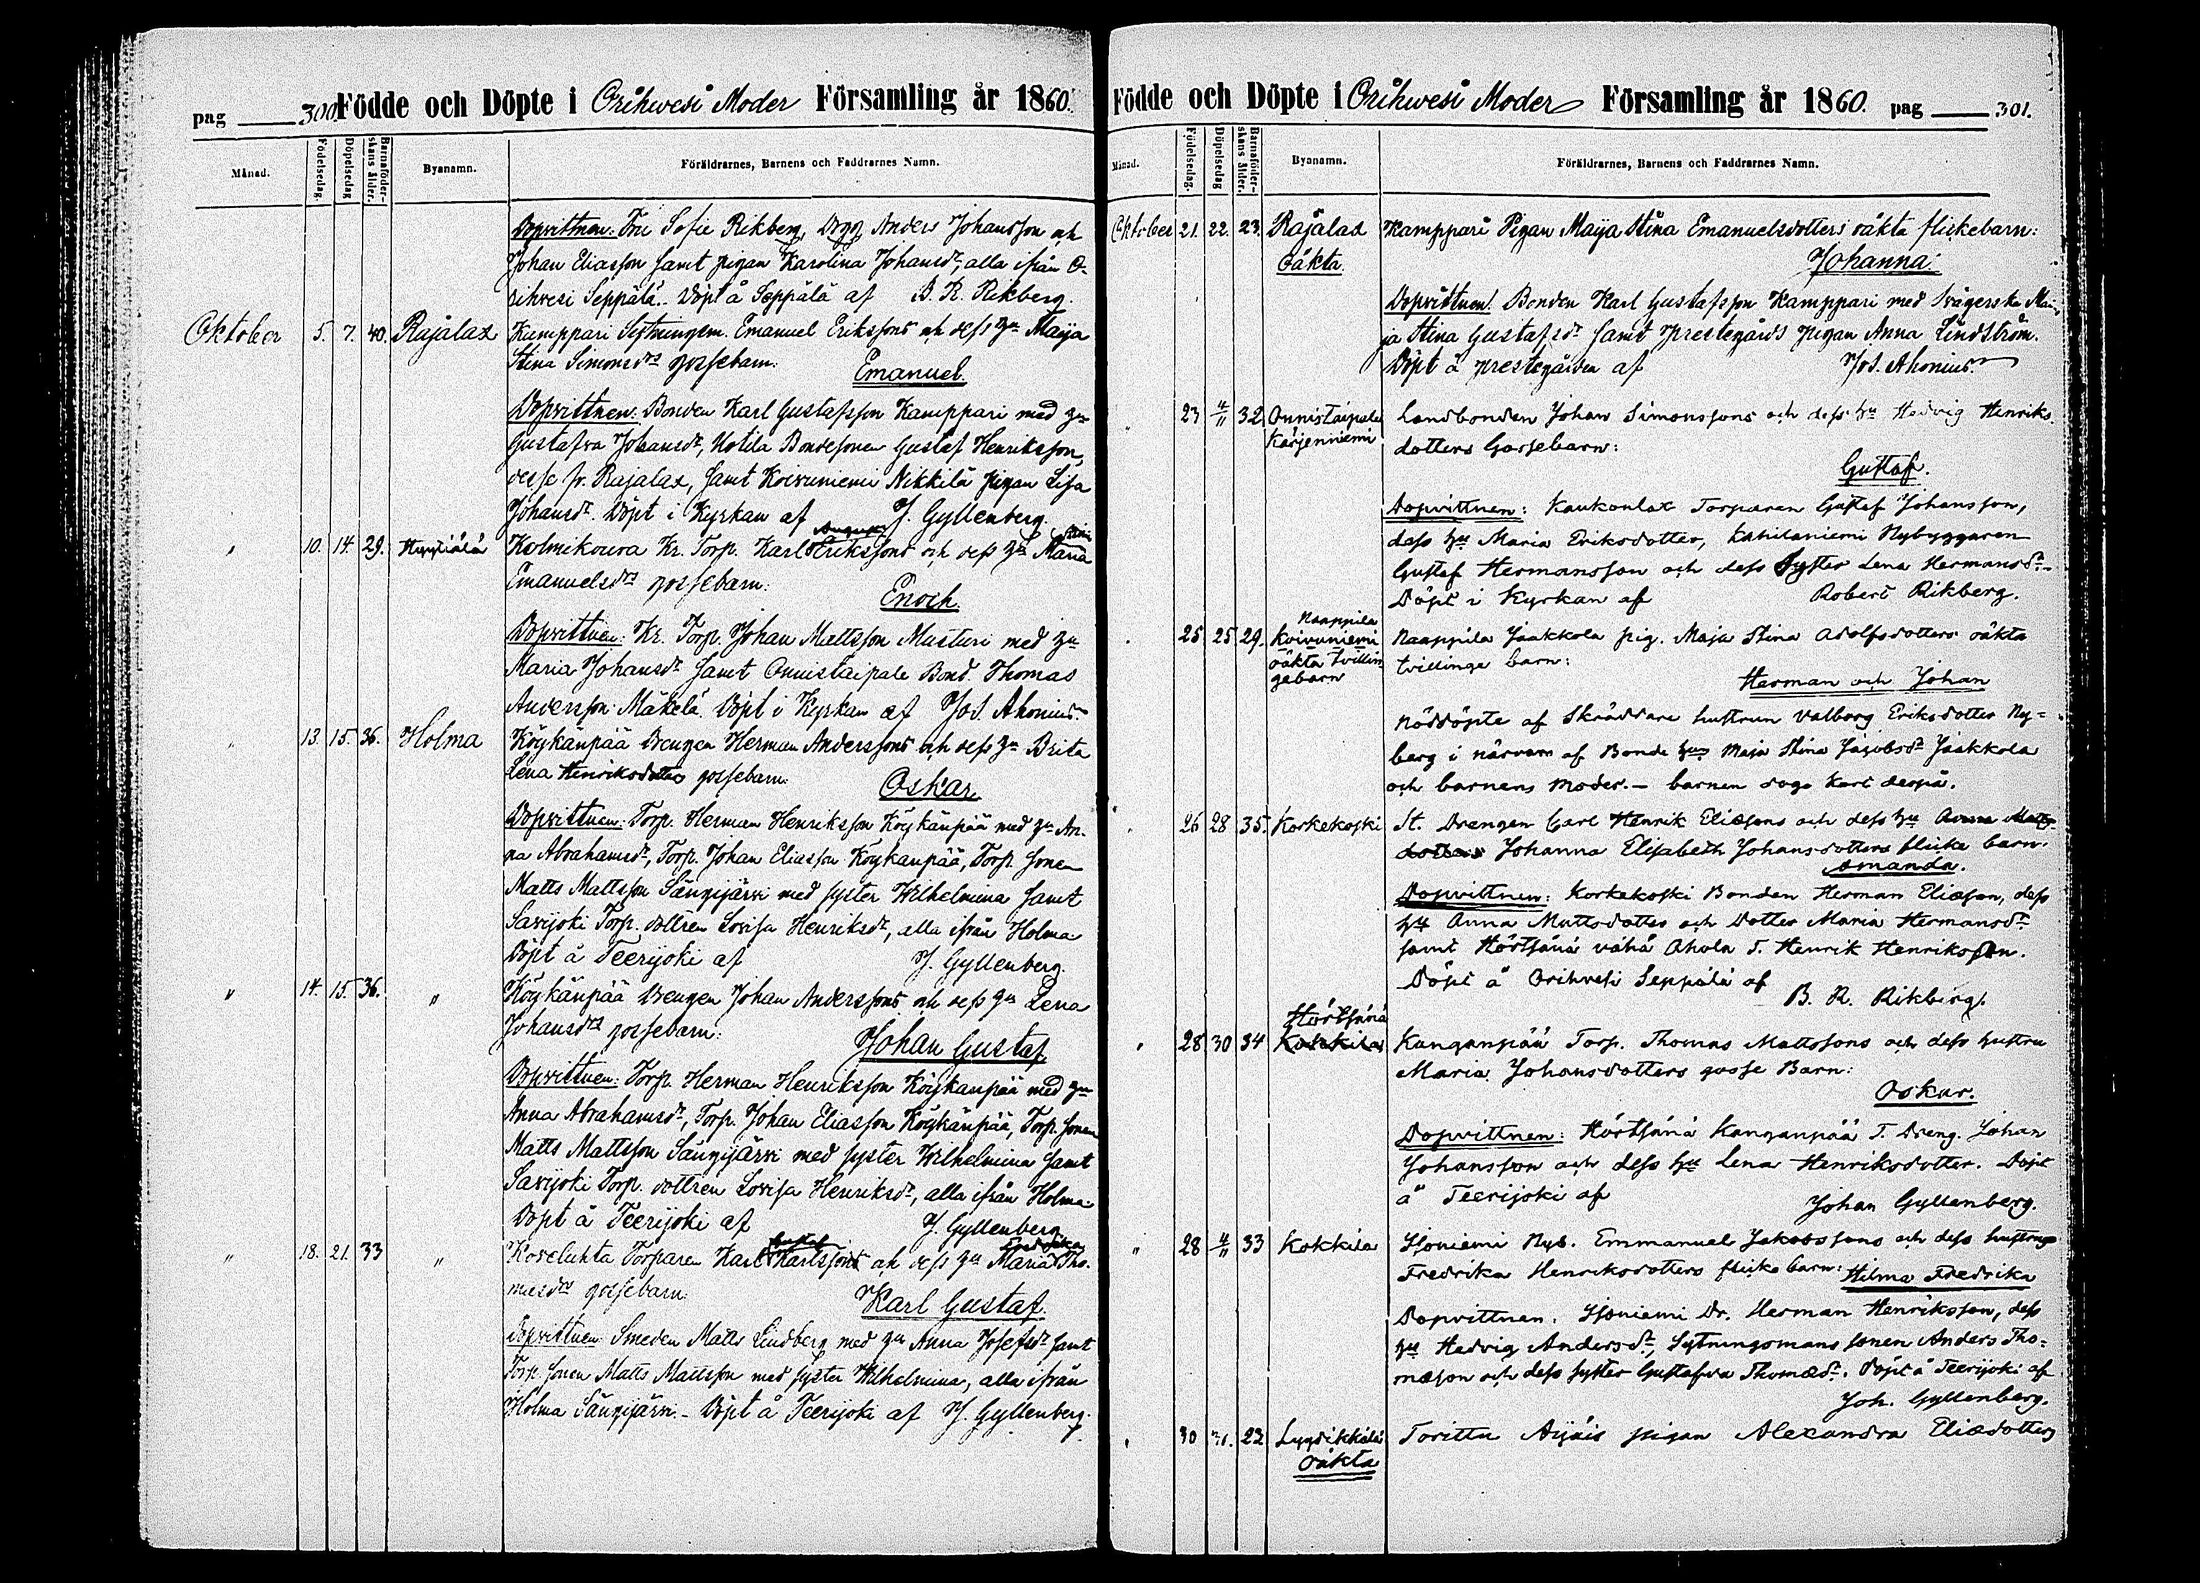 pag 300. Födde och Döpte i Orihwesi Moder Församling år 1860.
Månad. Födelsedag. Döpelsedag Barnaföderskans ålder. Byanamn. Föräldrarnes, Barnens och Faddrarnes Namn.
Dopvittnen: Fru Sofie Rikberg, Anders Johansson och
Johan Eliasson samt pigan Karolina Johansdr, alla ifrån O-
rihvesi Seppälä. Döpt å Seppälä af B. R. Rikberg.
Oktober 5. 7. 40. Rajalax Kamppari Sytningsm. Emanuel Erikssons och dess hu Maija
Stina Simonsdrs gossebarn: Emanuel.
Dopvittnen: Bonden Karl Gustafsson Kamppari med hu
Gustafva Johansdr, Uotila Bondesonen Gustaf Henriksson,
desse fr. Rajalax, samt Koivuniemi Nikkilä pigan Lisa
Johansdr. Döpt i Kyrkan af J. Gyllenberg.
" 10. 14. 29. Hyytiälä Kolmikoura Kr. Torp. Karl Erikssons och dess hu Maria
Emanuelsdrs gossebarn: Enoch.
Dopvittnen: Kr. Torp. Johan Mattsson Musturi med hu
Maria Johansdr samt Onnistaipale Bond. Thomas
Andersson Mäkelä. Döpt i Kyrkan af Jos. Ahonius.
" 13. 15. 36. Holma Köykänpää Drengen Herman Anderssons och dess hu Brita
Lena Henriksdotters gossebarn: Oskar.
Dopvittnen: Torp. Herman Henriksson Köykänpää med hu An-
na Abrahamsdr, Torp. Johan Eliasson Köykänpää, Torp. sonen
Matts Mattsson Sängijärvi med syster Wilhelmina samt
Savijoki Torp. dottren Lovisa Henriksdr, alla ifrån Holma
Döpt å Teerijoki af J. Gyllenberg.
" 14. 15. 36. " Köykänpää Drengen Johan Anderssons och dess hu Lena
Johansdrs gossebarn: Johan Gustaf
Dopvittnen: Torp. Herman Henriksson Köykänpää med hu
Anna Abrahamsdr, Torp. Johan Eliasson Köykänpää, Torp. sonen
Matts Mattsson Sängijärvi med syster Wilhelmina samt
Savijoki Torp. dottren Lovisa Henriksdr, alla ifrån Holma.
Döpt å Teerijoki af J. Gyllenberg
Gustaf Fredrika
" 18. 21. 33 " Koveluhta Torparen Karl Karlssons och dess hu Maria Tho-
masdrs gossebarn: Karl Gustaf.
Dopvittnen: Smeden Matts Lindberg med hu Anna Josefsdr samt
Torp. sonen Matts Mattsson med syster Wilhelmina, alla ifrån
Holma Sängijärvi. - Döpt å Teerijoki af J. Gyllenberg.
Födde och Döpte i Orihwesi Moder Församling år 1860. pag 301.
Månad. Födelsedag. Döpelsedag Barnaföderskans ålder. Byanamn. Föräldrarnes, Barnens och Faddrarnes Namn.
Oktober 21. 22. 23. Rajalax Kamppari Pigan Maija Stina Emanuelsdotters oäkta flickebarn:
oäkta. Johanna.
Dopvittnen: Bonden Karl Gustafsson Kamppari med svägerska Mai-
ja Stina Gustafsdr samt prestegårds pigan Anna Lindström.
Döpt å prestegården af Jos. Ahonius.
23 4/11 32 Onnistaipale Landbonden Johan Simonssons och dess hu Hedvig Henriks
Karjenniemi dotters Gossebarn:
Gustaf.
Dopvittnen: Kaukonlax Torparen Gustaf Johansson,
dess hu Maria Eriksdotter, Nybyggaren
Gustaf Hermansson och dess syster Lena Hermansdr.
Döpt i Kyrkan af Robert Rikberg.
Naappila
25 25 29. Koivuniemi Naappila Jaakkola pig. Maja Stina Adolfsdotters oäkta
oäkta tvillin- tvillinge barn:
gebarn Herman och Johan
Nöddöpte af Skräddare hustrun Valborg Eriksdotter Ny-
berg i närvaro af Bonde hus Maja Stina Jakobsdr Jaakkola
och barnens Moder. - barnen dogo kort derpå.
26 28 35. Korkekoski St. Drengen Carl Henrik Eliæsons och dess hu Anna Matts-
dotters Johanna Elisabeth Johansdotters flicke barn.
Amanda.
Dopvittnen: Korkekoski Bonden Herman Eliæson, dess
hu Anna Mattsdotter och Dotter Maria Hermansdr
samt Hörtsänä vähä Ahola T. Henrik Henriksson.
Döpt å Orihvesi Seppälä af B. R. Rikberg.
Hörtsänä
" 28 30 34 Kokkila Kanganpää Torp. Thomas Mattssons och dess hustru
Maria Johansdotters gosse Barn:
Oskar.
Dopvittnen: Hörtsänä Kanganpää T. Dreng. Johan
Johansson och dess hu Lena Henriksdotter. Döpt
å Teerijoki af Johan Gyllenberg.
" 28 4/11 33 Kokkila Isoniemi Nyb. Emmanuel Jakobssons och dess hustrus
Fredrika Henriksdotters flicke barn: Hilma Fredrika
Dopvittnen. Isoniemi Dr. Herman Henriksson, dess
hu Hedvig Andersdr, Sytningsmans sonen Anders Tho-
mæson och dess syster Gustafva Thomædr. Döpt å Teerijoki af
Joh. Gyllenberg.
30 31. 23 Lyydikkälä Torittu Äijäis pigan Alexandra Eliædotters
Oäkta